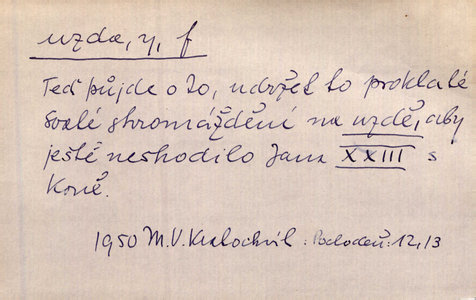 uzda, y, f
Teď půjde o to, udržet to prokleté
svaté shromáždění na uzdě, aby
ještě neshodilo Jana XXIII s
koně.
1950 M.V. Kratochvíl: Pochodeň: 12,13